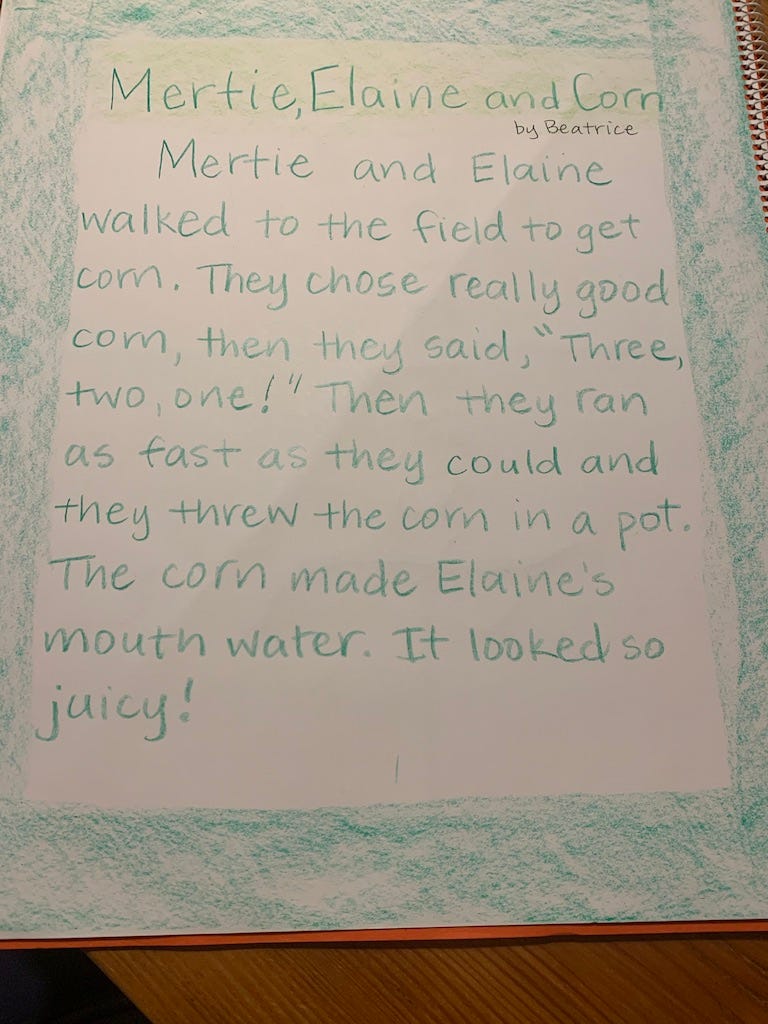 Mertie, Elaine and Corn
by Beatrice
Mertie and Elaine
walked to the field to get
corn. They chose really good
corn, then they said, "Three,
two, one!" Then they ran
as fast as they could and
they threw the corn in a pot.
The corn made Elaine's
mouth water. It looked so
juicy!
1